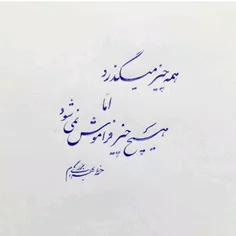 همه چیز میگذرد
اما
هیچ چیز فراموش نمی شود
خط